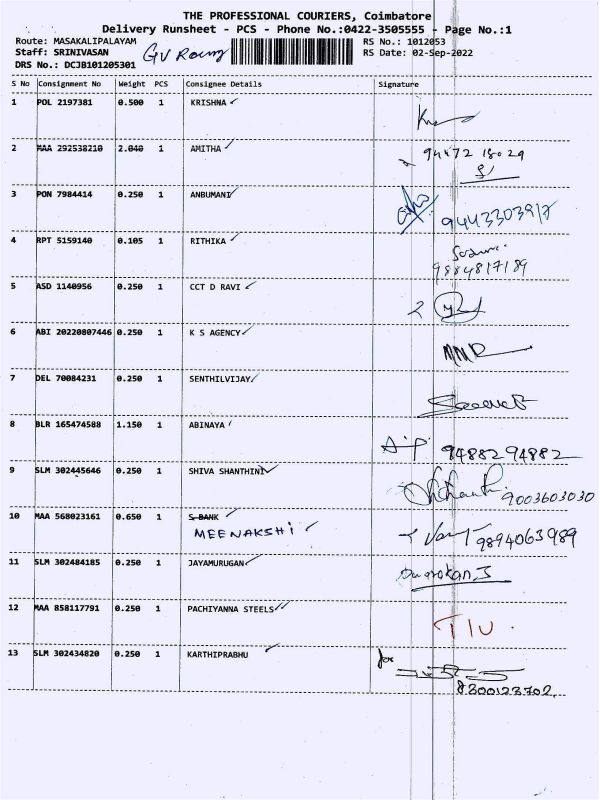 THE PROFESSIONAL COURIERS, Coimbatore
Delivery Runsheet - PCS - Phone No.:0422-3505555 - Page No.:1
Route: MASAKALIPALAYAM RS No.: 1012053
Staff: SRINIVASAN GV RS Date: 02-Sep-2022
DRS No.: DCJB101205301
S No Consignment No Weight PCS Consignee Details Signature
1 POL 2197381 0.500 1 KRISHNA
2 MAA 292538210 2.040 1 AMITHA 94472 18029
3 PON 7984414 0.250 1 ANBUMANI 9443303917
4 RPT 5159140 0.105 1 RITHIKA
9884817189
5 ASD 1140956 0.250 1 CCT D RAVI
6 ABI 20220807446 0.250 1 K S AGENCY
7 DEL 70084231 0.250 1 SENTHILVIJAY
8 BLR 165474588 1.150 1 ABINAYA 94882 94882
9 SLM 302445646 0.250 1 SHIVA SHANTHINI 9003603030
10 MAA 568023161 0.650 1 S BANK
MEENAKSHI 9894063989
11 SLM 302484185 0.250 1 JAYAMURUGAN
12 MAA 858117791 0.250 1 PACHIYANNA STEELS
13 SLM 302434820 0.250 1 KARTHIPRABHU for
8300123702